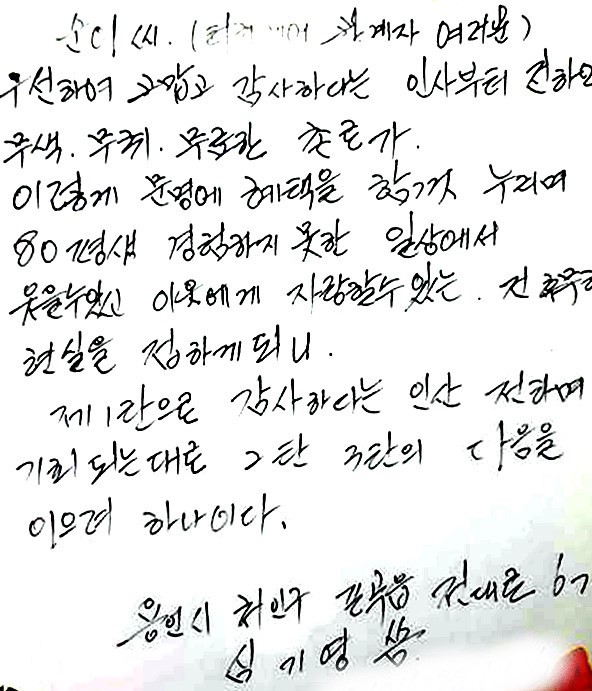 순이 씨. ( 관계자 여러분)
우선하여 고맙고 감사하다는 인사부터 전하오
무색. 무취. 무료한 촌로가.
이렇게 문명에 혜택을 한껏 누리며
80평생 경험하지 못한 일상에서
웃을수있고 이웃에게 자랑할수 있는. 전후무
현실을 접하게 되니.
제1탄으로 감사하다는 인산 전하며
기회 되는대로 2탄 3탄의 다음을
이으려 하나이다.
용인시 처인구 포곡읍 전대로 67
심기영